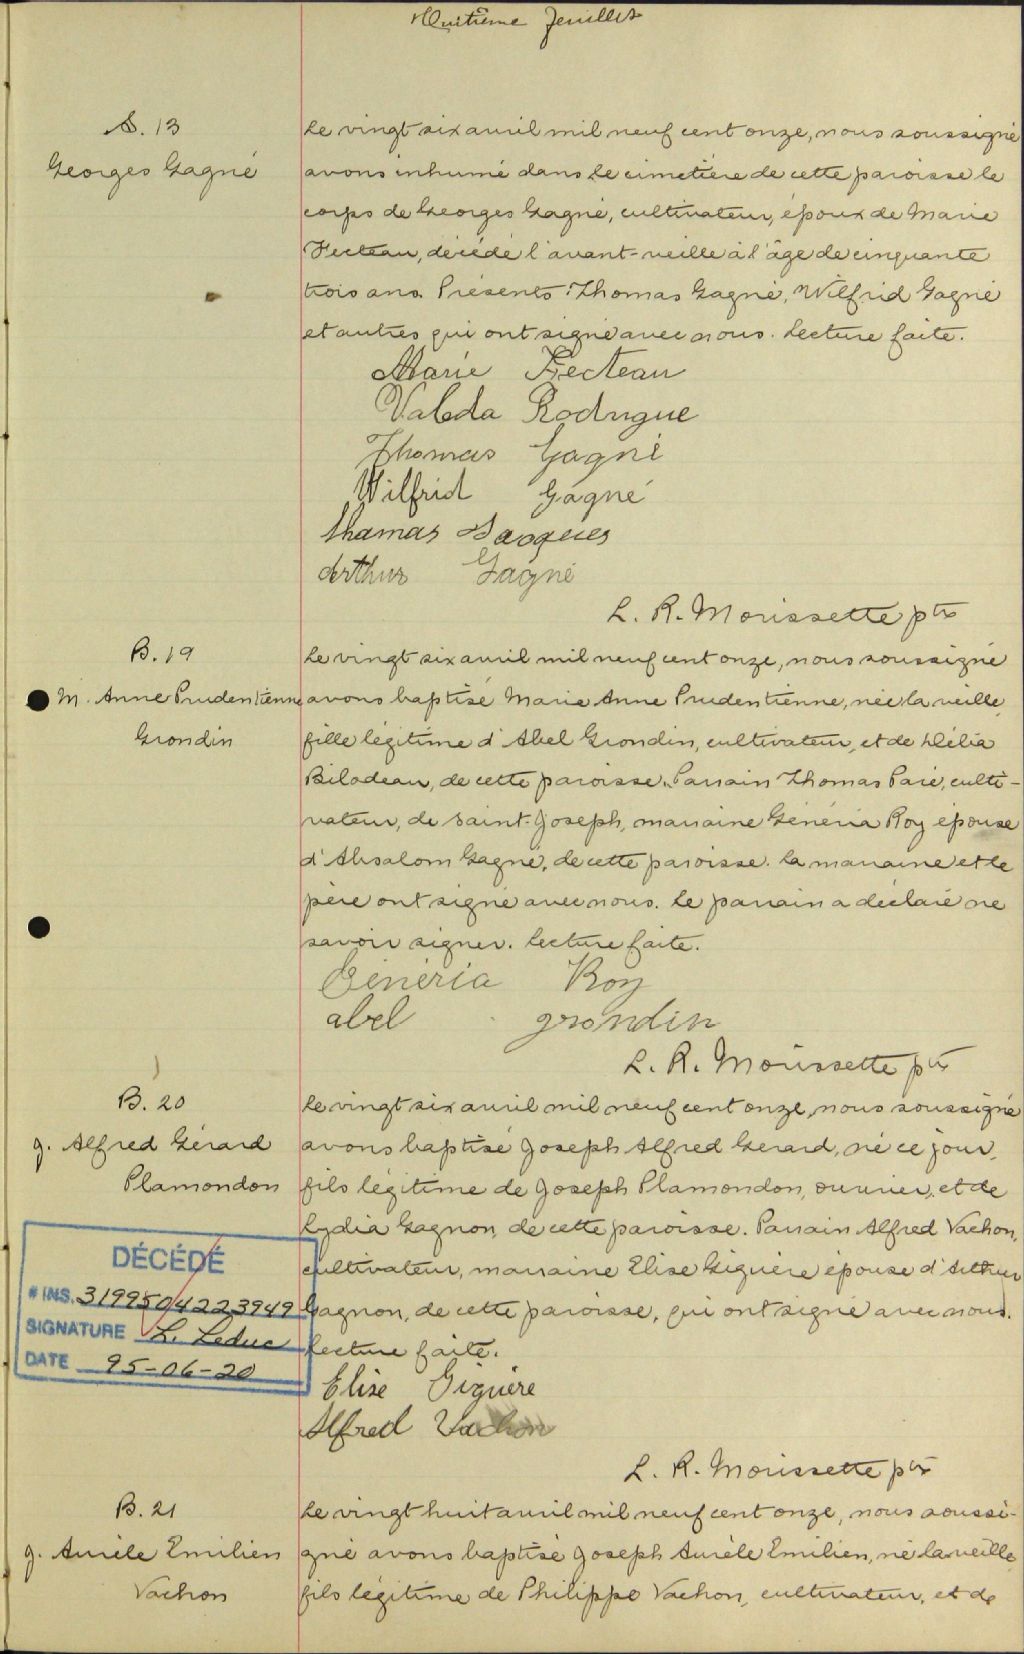 Huitième feuillet
S. 13
Georges Gagné
Le vingt six avril mil neuf cent onze, nous soussigné
avons inhumé dans le cimetière de cette paroisse le
corps de Georges Gagné, cultivateur, époux de Marie
Fecteau, décédé l'avant-veille à l'âge de cinquante
trois ans. Présents: Thomas Gagné, Wilfrid Gagné
et autres qui ont signé avec nous. Lecture faite.
Marie Fecteau
Valeda Rodrigue
Thomas Gagné
Wilfrid Gagné
thamas Jacques
Arthur Gagné
L. R. Morissette ptre
B. 19
M. Anne Prudentienne
Grondin
Le vingt six avril mil neuf cent onze, nous soussigné
avons baptisé Marie Anne Prudentienne, née la veille,
fille légitime d'Abel Grondin, cultivateur, et de Délia
Bilodeau, de cette paroisse. Parrain Thomas Paré, culti-
vateur, de Saint-Joseph, marraine Généria Roy épouse
d'Absalom Gagné, de cette paroisse. La marraine et le
père ont signé avec nous. Le parrain a déclaré ne
savoir signer. Lecture faite.
Généria Roy
abel grondin
L. R. Morissette ptre
B. 20
J. Alfred Gérard
Plamondon
Le vingt six avril mil neuf cent onze, nous soussigné
avons baptisé Joseph Alfred Gerard, né ce jour,
fils légitime de Joseph Plamondon, ouvrier, et de
Lydia Gagnon, de cette paroisse. Parrain Alfred Vachon,
cultivateur, marraine Elise Giguère épouse d'Arthur
Gagnon, de cette paroisse, qui ont signé avec nous.
Lecture faite.
DÉCÉDÉ
# INS. 3199504223949
SIGNATURE L. Leduc
DATE 95-06-20
Elise Giguère
Alfred Vachon
L. R. Morissette ptre
B. 21
J. Aurèle Emilien
Vachon
Le vingt huit avril mil neuf cent onze, nous soussi-
gné avons baptisé Joseph Aurèle Emilien, né la veille,
fils légitime de Philippe Vachon, cultivateur, et de